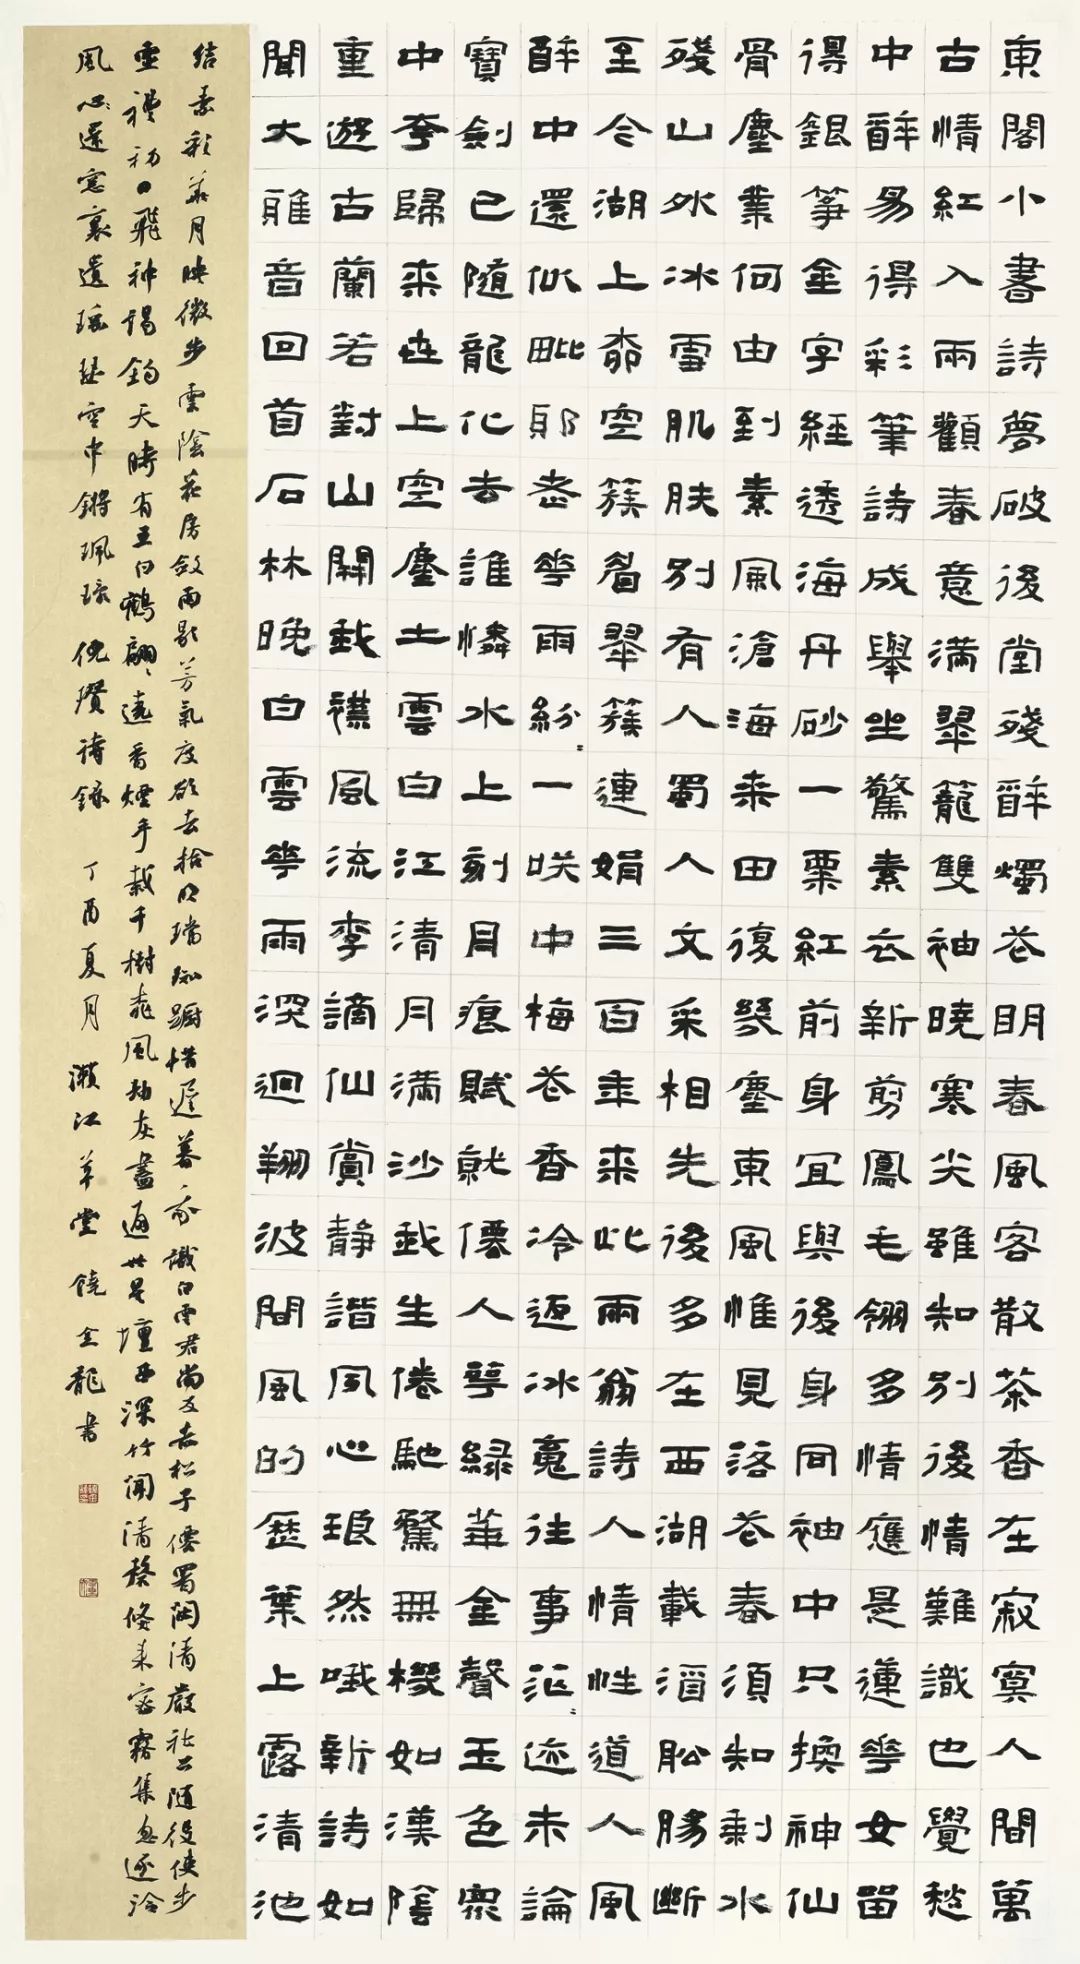 東閣小書詩夢破後堂殘醉燭花明春風客散茶香在寂寞人間萬
古情紅入兩顴春意滿翠籠雙袖曉寒尖雖知別後情難識也覺愁
中醉易得彩筆詩成舉坐驚素衣新剪鳳毛翎多情應是蓮華女留
得銀箏金字經透海丹砂一粟紅前身宜與後身同袖中只換神仙
骨塵業何由到素風滄海来田復幾塵東風惟見落花春須知剩水
殘山外冰雪肌膚別有人蜀人文采相先後多在西湖載酒船腸斷
至今湖上柳空簇眉翠簇連娟三百年来此兩翁詩人情性道人風
醉中還似毗耶老華雨紛〃一笑中梅花香冷返冰魂往事茫〃迹未論
寶劍已隨龍化去誰憐水上刻月痕賦就僊人萼綠華金聲玉色眾
中夸歸来世上空塵土雲白江清月滿沙我生倦馳驚無機如漢陰
重遊古蘭若對山開我襟風流李謫仙賞靜諧夙心琅然哦新詩如
聞大雅音回首石林晚白雲華雨深迴翔波間風的歷葉上露清池
結素彩華月映微步雲陰花房斂雨歇芳氣度欲去拾明璫踟躕惜遲暮我識白雲君尚友赤松子儒蜀閟清嚴社公隨役使步
虛禮初日飛神謁鈞天時有五白鶴翩〃遶香煙手栽千樹桃風劫灰盡世星壇西深竹聞清磬倏来密霧集忽逐泠
風還窗裏遺瑤瑟空中鏘珮環 倪瓚詩錄 丁酉夏月 瀨江草堂 饒金龍書